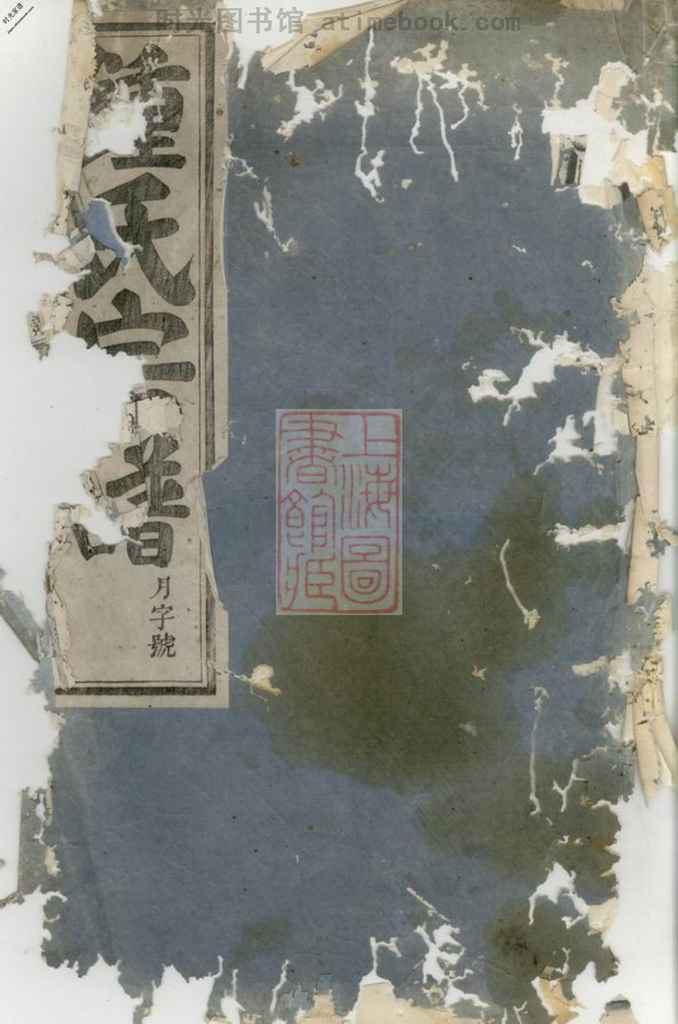 时光图书馆 atimebook.com
氏宗譜
月字號
上海圖
書館臧